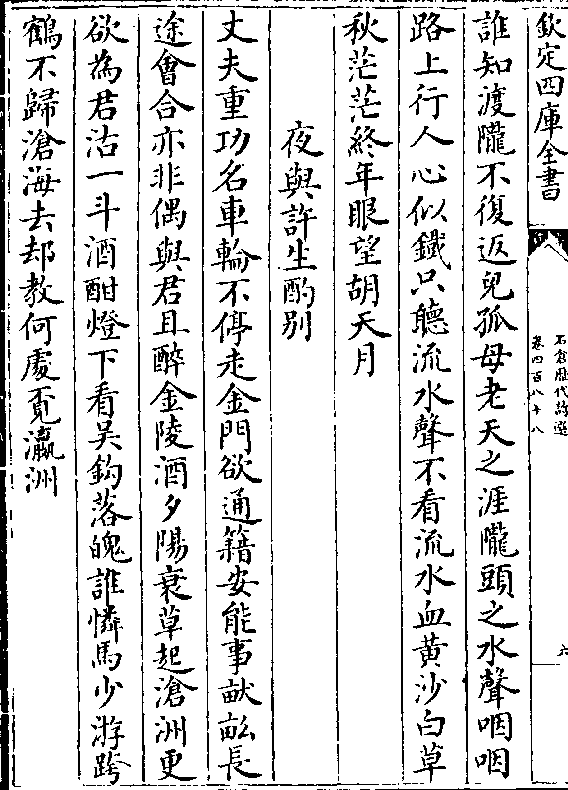 欽定四庫全書
石倉歷代詩選
卷四百八十八
六
誰知渡隴不復返兒孤母老天之涯隴頭之水聲咽咽
路上行人心似鐵只聽流水聲不看流水血黄沙白草
秋茫茫終年眼望胡天月
夜與許生酌别
丈夫重功名車輪不停走金門欲通籍安能事畎畝長
途會合亦非偶與君且醉金陵酒夕陽衰草起滄洲更
欲為君沽一斗酒酣燈下看吳鈎落魄誰憐馬少游跨
鶴不歸滄海去却教何處覓瀛洲